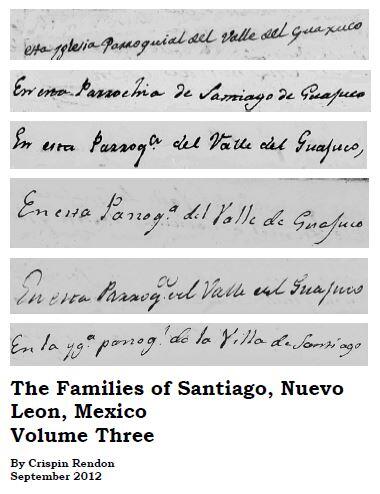 esta yglesia Parroquial del Valle del Guaxuco
En esta Parrochia de Santiago de Guajuco
En esta Parroqª del Valle del Guajuco,
En esta Parroqª del Valle de Guajuco
En esta Parroqª del Valle del Guajuco
En la ygª parroql de la Villa de Santiago
The Families of Santiago, Nuevo
Leon, Mexico
Volume Three
By Crispin Rendon
September 2012